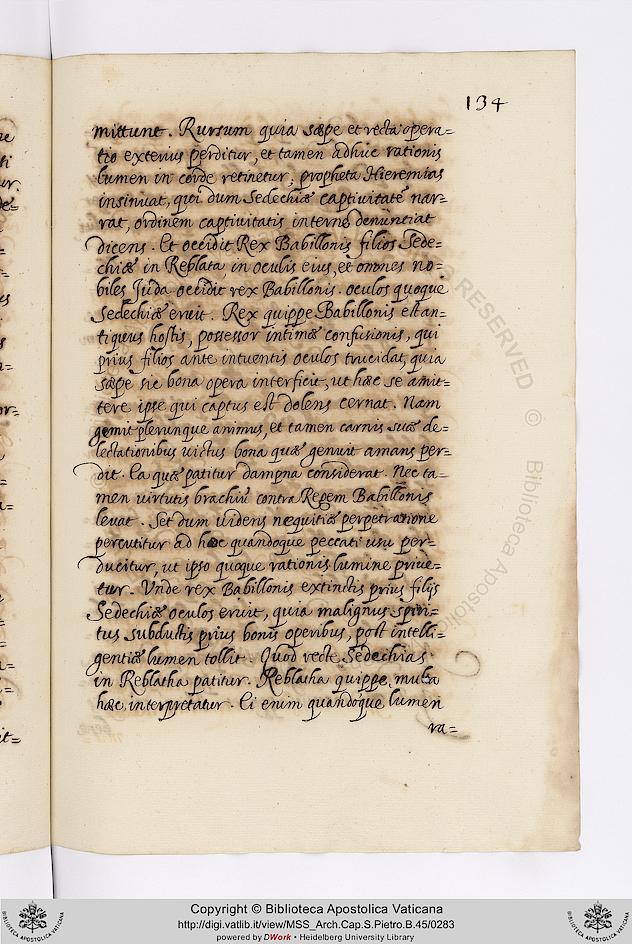 134
mittunt. Rursum quia sæpe et recta opera=
tio exterius perditur, et tamen adhuc rationis
lumen in corde retinetur; propheta Hieremias
insinuat, qui dum Sedechiæ captivitatẽ nar=
rat, ordinem captivitatis internę denuntiat
dicens. Et occidit Rex Babillonis filios Sede=
chiæ in Reblata in oculis eius, et omnes no=
biles Juda occidit rex Babillonis. oculos quoque
Sedechiæ eruit. Rex quippe Babillonis est an=
tiquus hostis, possessor intimæ confusionis, qui
prius filios ante intuentis oculos trucidat, quia
sæpe sic bona opera interficit, ut hæc se amit=
tere ipse qui captus est dolens cernat. Nam
gemit plerunque animus, et tamen carnis suæ de=
lectationibus uictus bona quæ genuit amans per=
dit. Ea quæ patitur dampna considerat. Nec ta=
men uirtutis brachiũ contra Regem Babillonis
leuat. Set dum uidens nequitiæ perpetratione
percutitur ad hoc quandoque peccati usu per=
ducitur, ut ipso quoque rationis lumine priue=
tur. Unde rex Babillonis extinctis prius filijs
Sedechiæ oculos eruit, quia malignus spiri=
tus subductis prius bonis operibus, post intelli=
gentiæ lumen tollit. Quod recte Sedechias
in Reblatha patitur. Reblatha quippe, multa
hæc, interpretatur. Ei enim quandoque lumen
ra=
RIGHTS RESERVED © Biblioteca Apostolica
Copyright © Biblioteca Apostolica Vaticana
http://digi.vatlib.it/view/MSS_Arch.Cap.S.Pietro.B.45/0283
powered by DWork • Heidelberg University Library